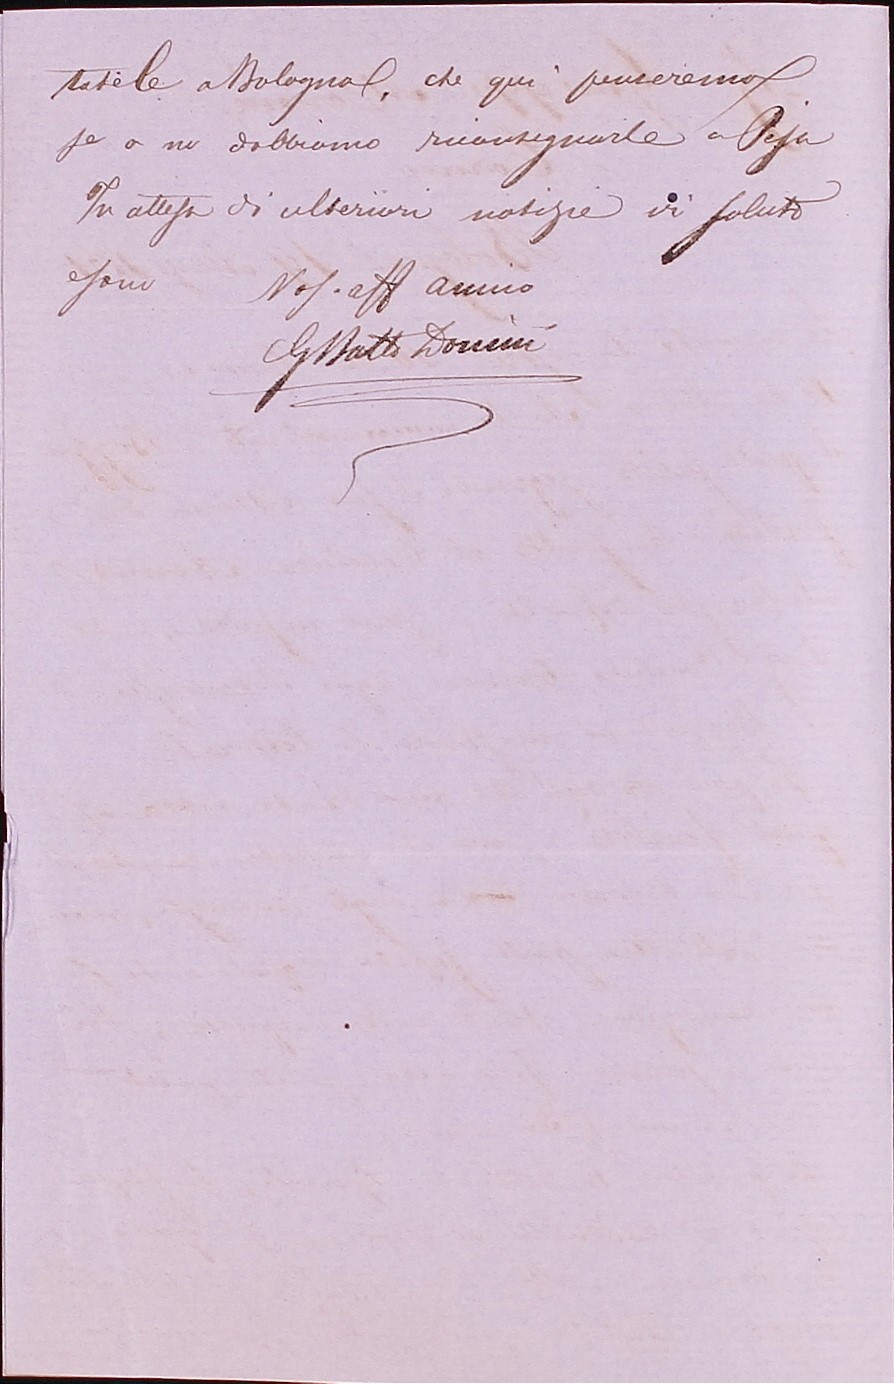 tatele a Bologna, che qui penseremo
se o no dobbiamo riconsegnarle a Pisa
In attesa di ulteriori notizie vi saluto
e sono Vos. aff amico
G Batta Donini